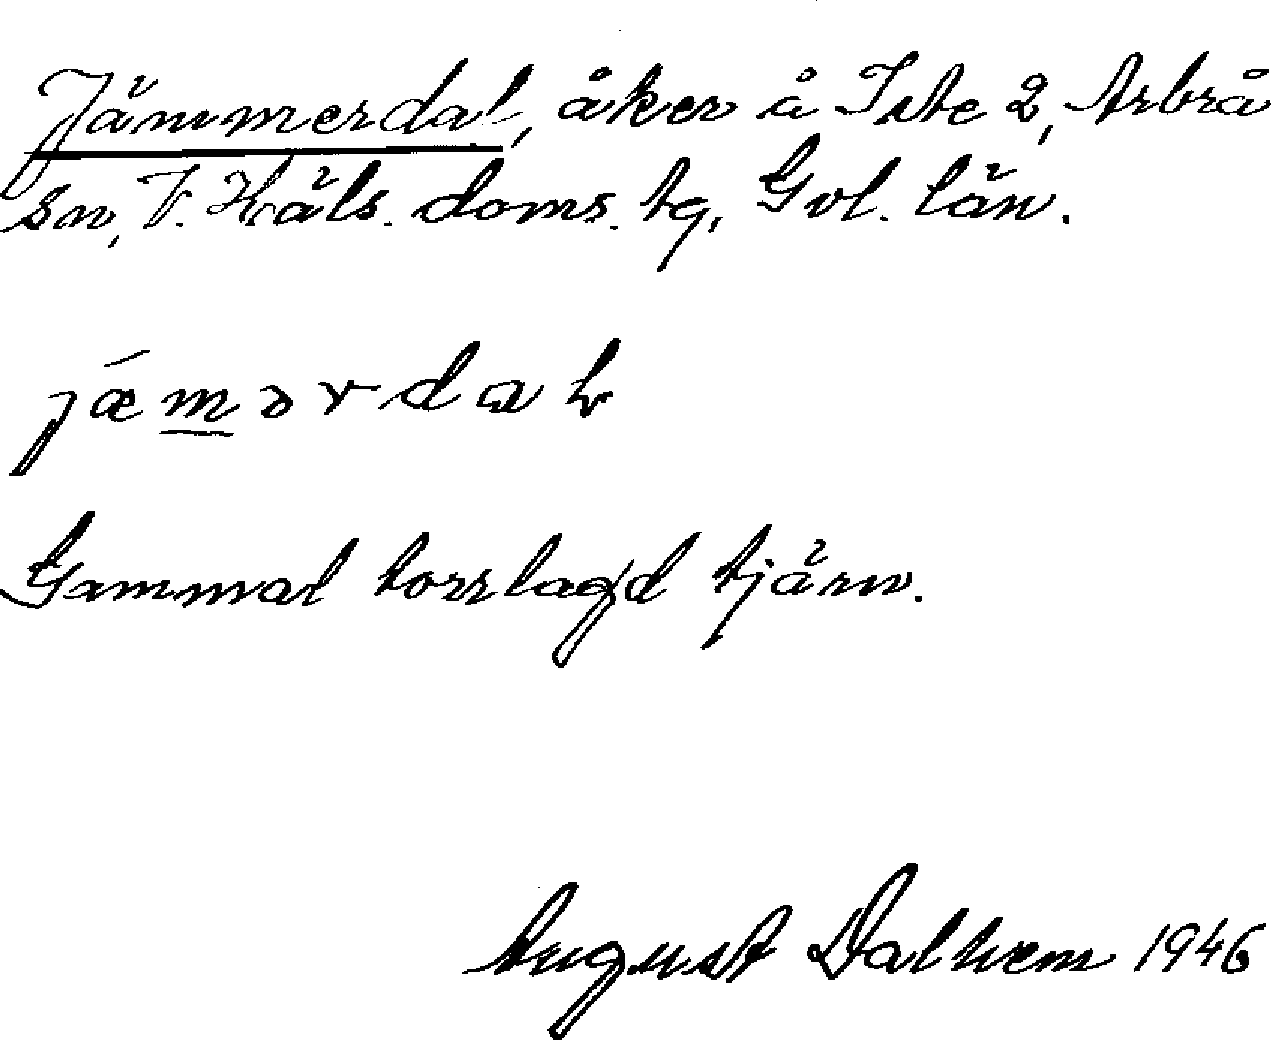 Jämmerdal, åker å Iste 2, Arbrå
sn, V. Häls. doms. tg, Gvl. län.
jǽm̲ərdaɬ
Gammal torrlagd tjärn.
August Dalhem 1946